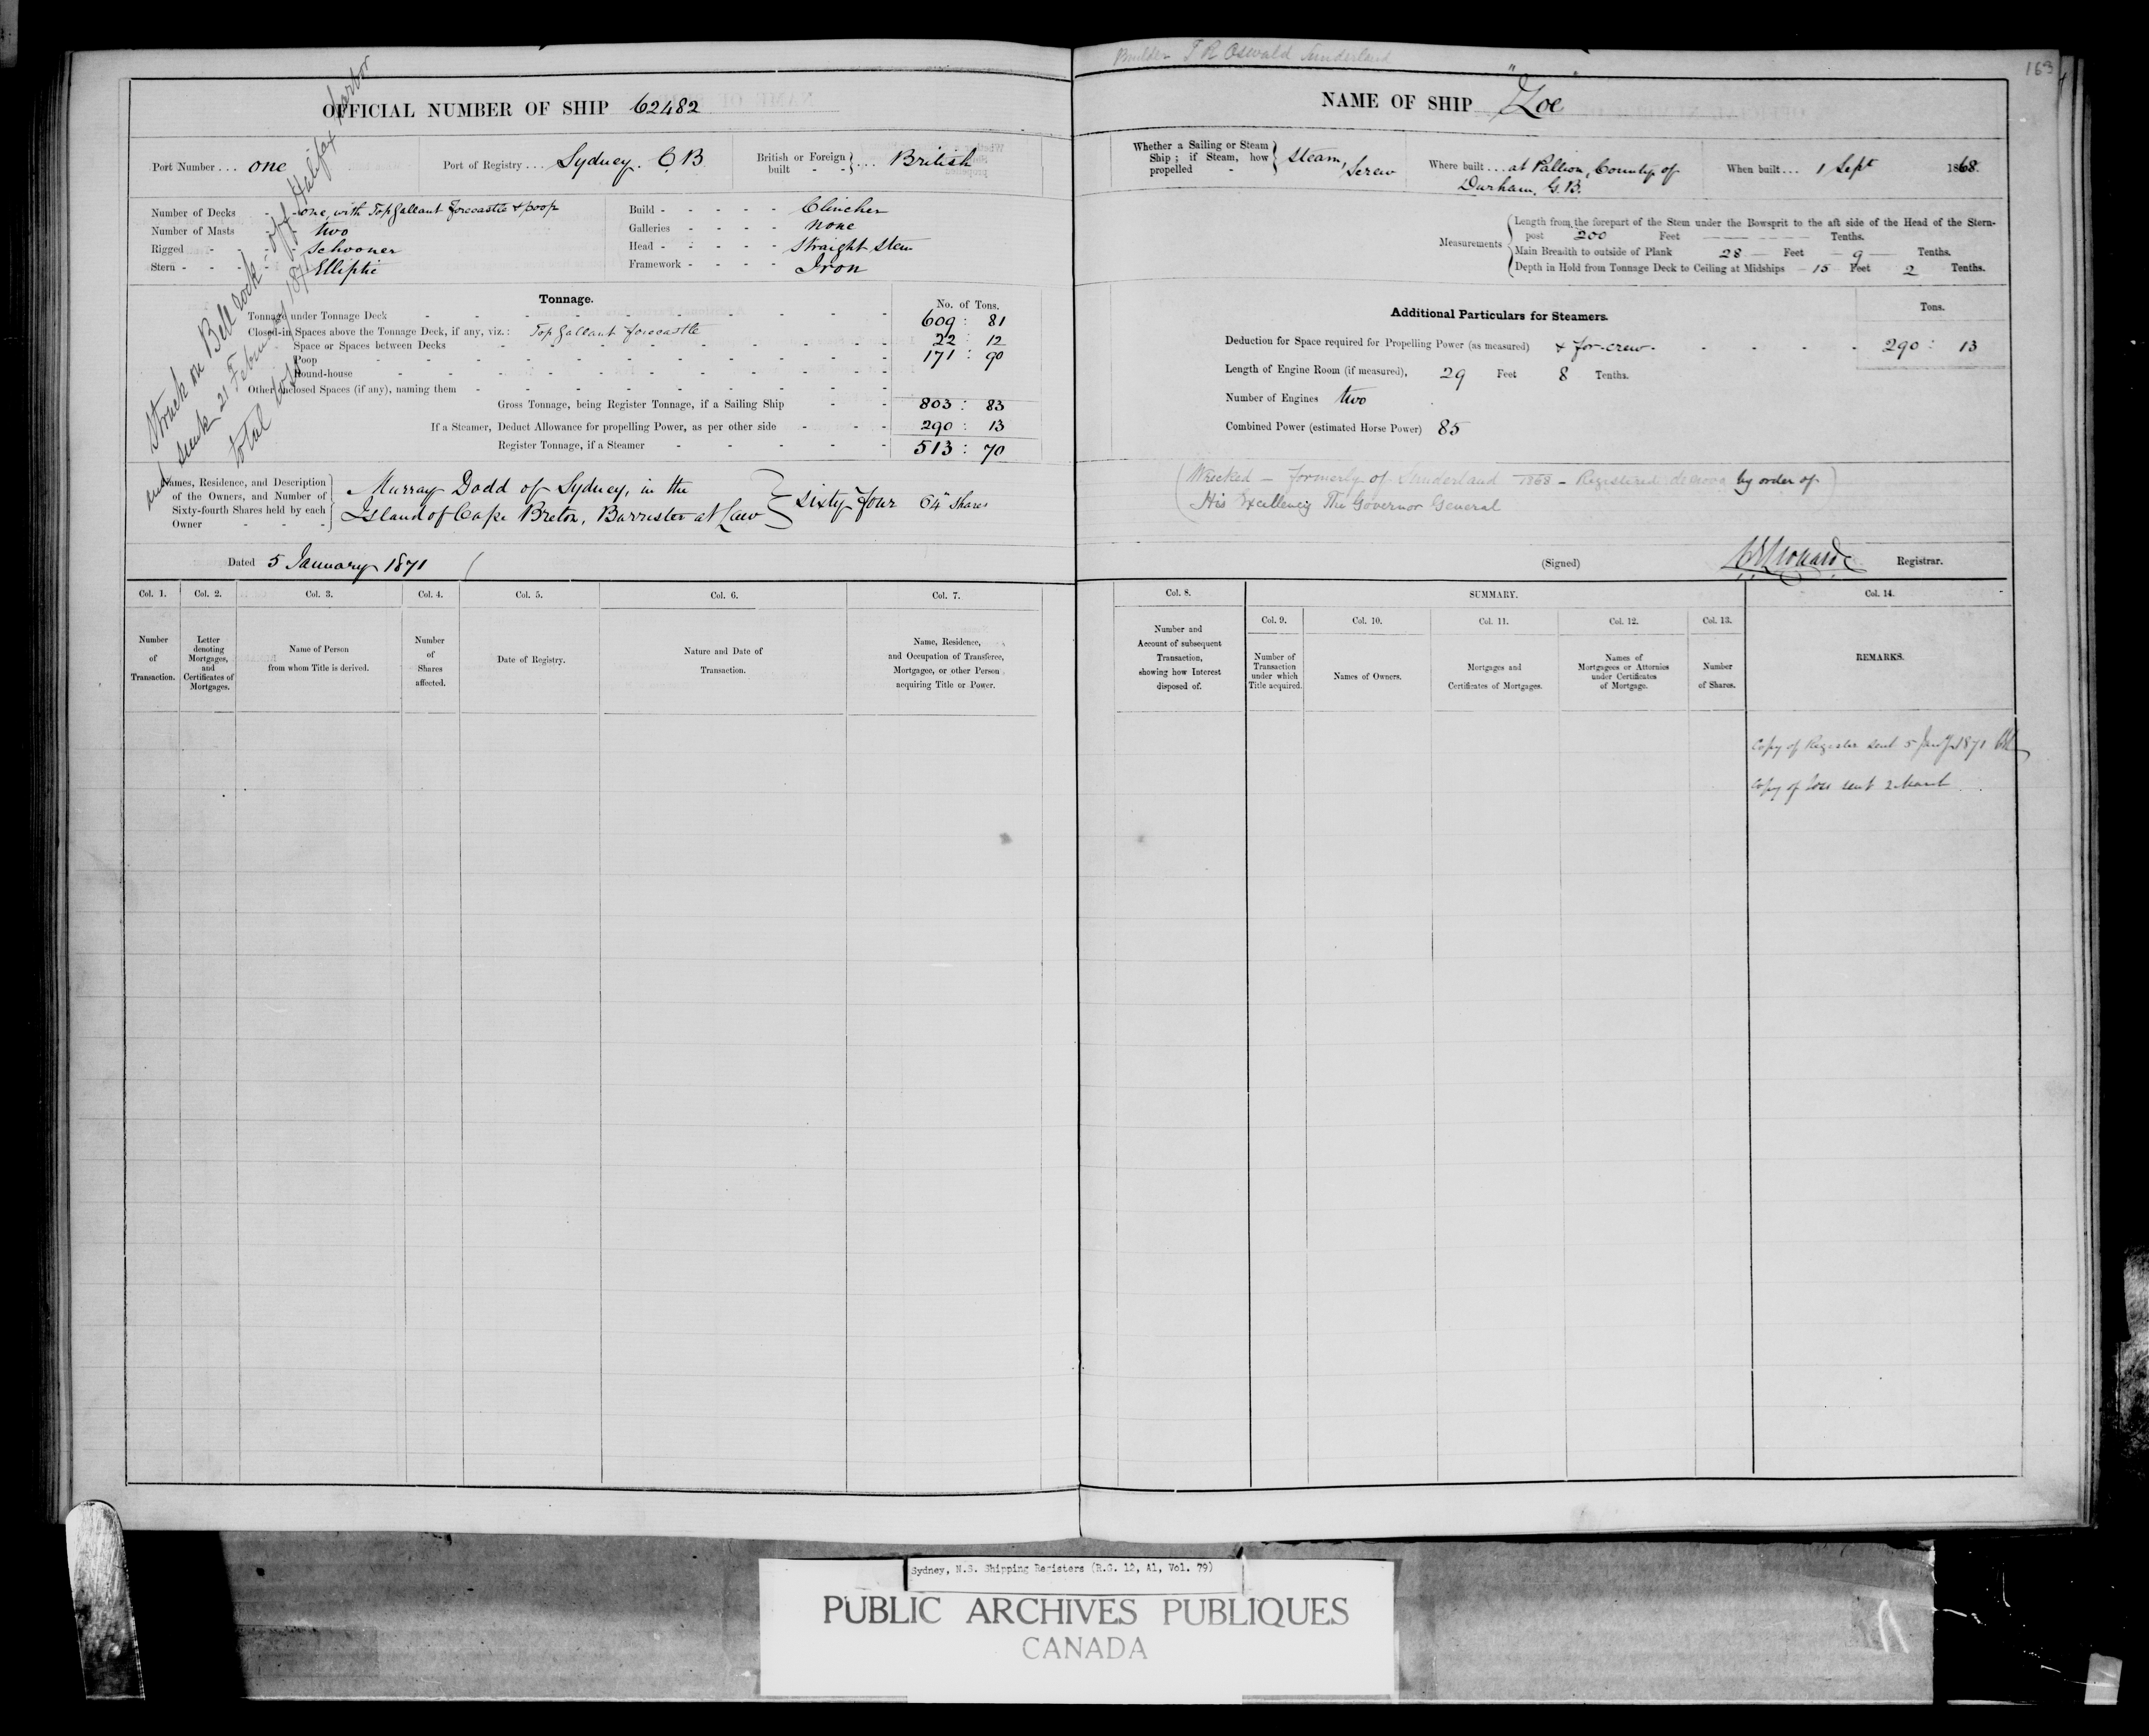 Builder T R Oswald Sunderland
163
OFFICIAL NUMBER OF SHIP 62482
Port Number ... one
Port of Registry ... Sydney. C.B
British or Foreign built - - } ... British
Number of Decks - - one, with Top Gallant forecastle & poop
Number of Masts - two
Rigged - - Schooner
Stern - - - - Elliptic
Build - - - - - Clincher
Galleries - - - - none
Head - - - - - Straight Stem
Framework - - - - Iron
Struck on Bell rock - off Halifax Harbor
and sunk 21st February 1871
total loss
Tonnage.
No. of Tons.
Tonnage under Tonnage Deck 609 : 81
Closed-in Spaces above the Tonnage Deck, if any, viz.: Top Gallant forecastle
Space or Spaces between Decks 22 : 12
Poop 171 : 90
Round-house
Other enclosed Spaces (if any), naming them
Gross Tonnage, being Register Tonnage, if a Sailing Ship 803 : 83
If a Steamer, Deduct Allowance for propelling Power, as per other side 290 : 13
Register Tonnage, if a Steamer 513 : 70
Names, Residence, and Description of the Owners, and Number of Sixty-fourth Shares held by each Owner - - -
Murray Dodd of Sydney, in the
Island of Cape Breton, Barrister at Law } Sixty four 64th Shares
Dated 5 January 1871
Col. 1. Col. 2. Col. 3. Col. 4. Col. 5. Col. 6. Col. 7.
Number of Transaction.
Letter denoting Mortgages, and Certificates of Mortgages.
Name of Person from whom Title is derived.
Number of Shares affected.
Date of Registry.
Nature and Date of Transaction.
Name, Residence, and Occupation of Transferee, Mortgagee, or other Person acquiring Title or Power.
NAME OF SHIP "Zoe"
Whether a Sailing or Steam Ship; if Steam, how propelled - } Steam, Screw
Where built ... at Pallion, County of
Durham, G.B.
When built ... 1 Sept 1868.
Measurements
Length from the forepart of the Stem under the Bowsprit to the aft side of the Head of the Stern-
post 200 Feet Tenths.
Main Breadth to outside of Plank 28 Feet 9 Tenths.
Depth in Hold from Tonnage Deck to Ceiling at Midships 15 Feet 2 Tenths.
Additional Particulars for Steamers.
Tons.
Deduction for Space required for Propelling Power (as measured) & for crew - 290 : 13
Length of Engine Room (if measured), 29 Feet 8 Tenths.
Number of Engines two
Combined Power (estimated Horse Power) 85
(Wrecked - formerly of Sunderland 1868 - Registered de novo by order of
His Excellency The Governor General)
(Signed) Registrar.
Col. 8.
SUMMARY.
Col. 14.
Number and Account of subsequent Transaction, showing how Interest disposed of.
Col. 9. Col. 10. Col. 11. Col. 12. Col. 13.
Number of Transaction under which Title acquired.
Names of Owners.
Mortgages and Certificates of Mortgages.
Names of Mortgagees or Attornies under Certificates of Mortgage.
Number of Shares.
REMARKS.
Copy of Register sent 5 Jany 1871
Copy of loss sent 2 March
Sydney, N.S. Shipping Registers (R.G. 12, A1, Vol. 79)
PUBLIC ARCHIVES PUBLIQUES
CANADA